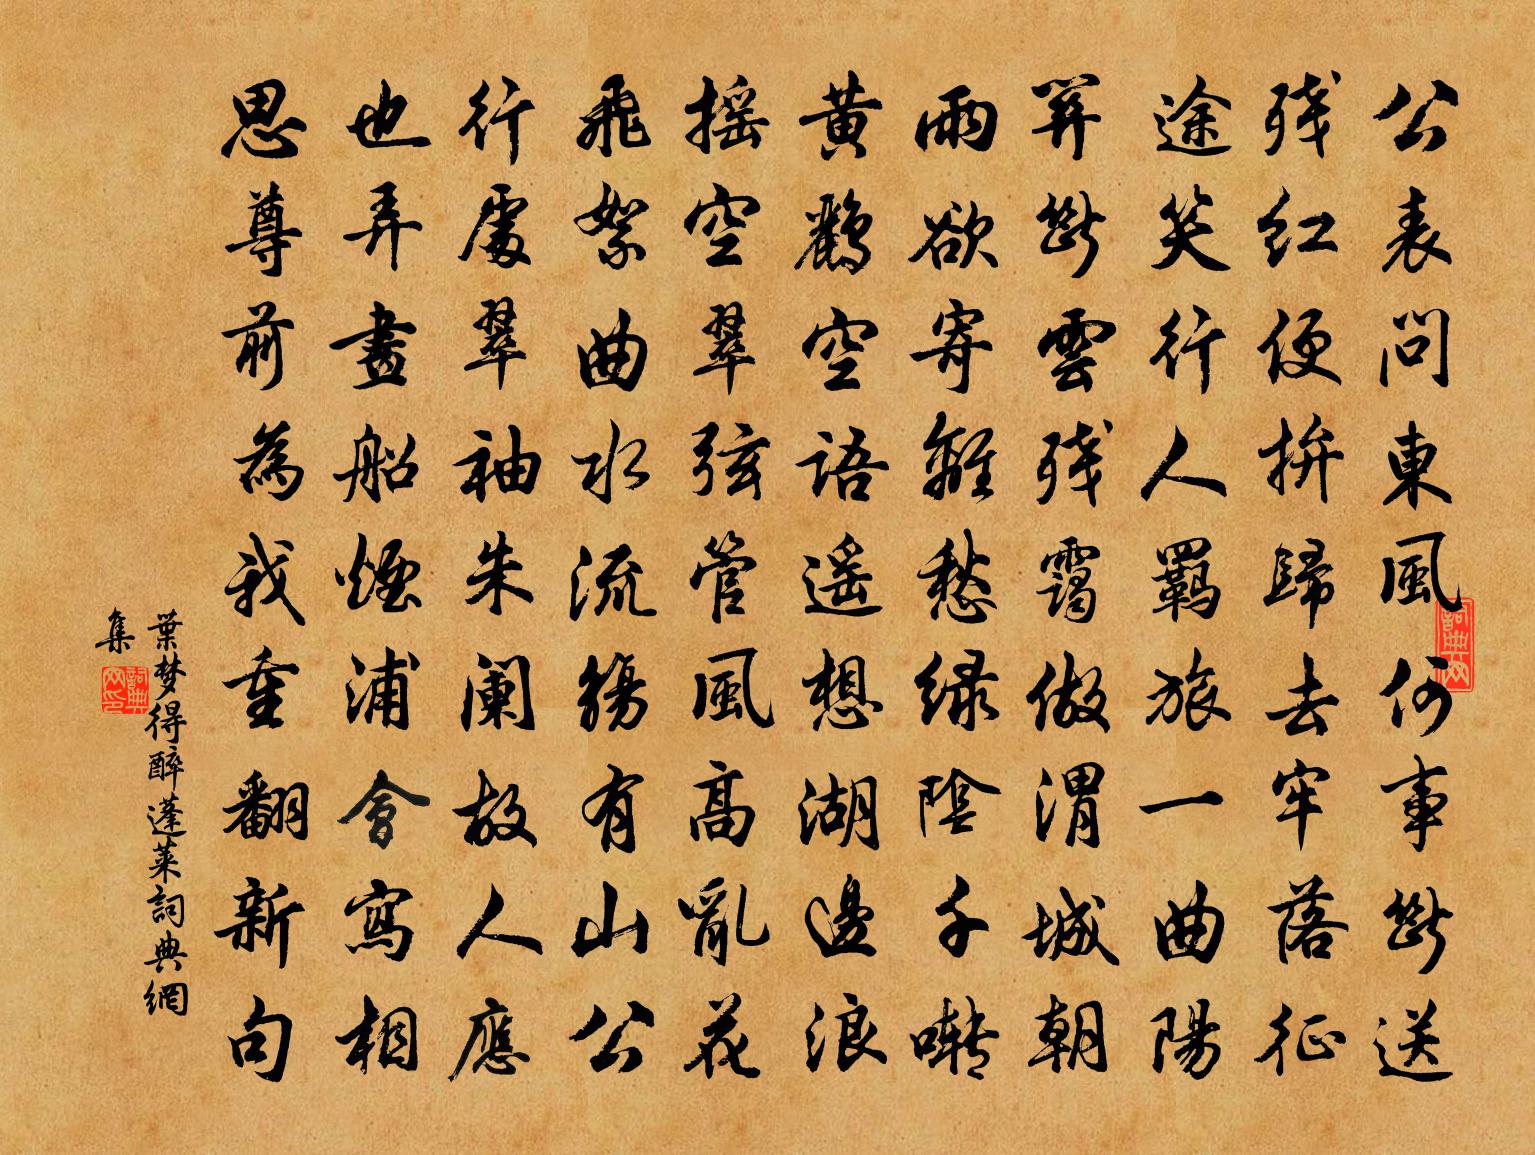 公表問東風何事斷送
残紅便拚歸去牢落征
途笑行人羈旅一曲陽
關斷雲残靄做渭城朝
雨欲寄離愁緑陰千囀
黄鸝空語遥想湖邊浪
摇空翠弦管風高亂花
飛絮曲水流觴有山公
行處翠袖朱闌故人應
也弄畫船煙浦會寫相
思尊前為我重翻新句
葉梦得醉蓬萊詞典網
集